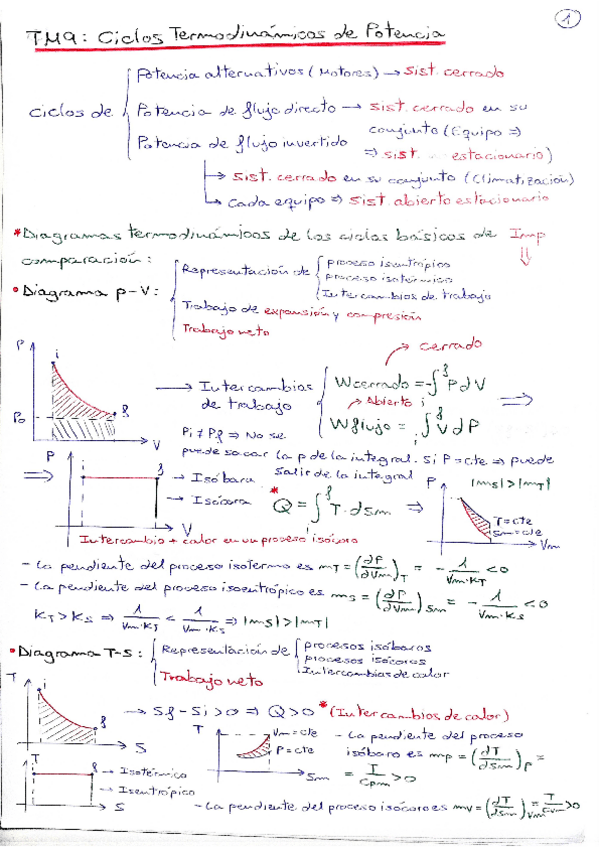 1
TM9: Ciclos Termodinámicos de Potencia
Ciclos de
Potencia alternativos (Motores) → sist. cerrado
Potencia de flujo directo → sist. cerrado en su
conjunto (Equipo ⇒
Potencia de flujo invertido
⇒ sist. estacionario)
→ sist. cerrado en su conjunto (Climatización)
→ cada equipo ⇒ Sist abierto estacionario
*Diagramas termodinámicos de los ciclos básicos de Imp
comparación: ⇓
• Diagrama p-V:
Representación de
proceso isentrópico
proceso isotérmico
Intercambios de trabajo
Trabajo de expansión y compresión
Trabajo neto
P i f P0 V
→ Intercambios
de trabajo
cerrado
Wcerrado = -∫ᵢᶠ P dV
Abierto
Wflujo = ∫ᵢᶠ V dP
⇒
Pi ≠ Pf ⇒ No se
puede sacar la p de la integral. Si P = cte ⇒ puede
salir de la integral
⇒
P f V
→ Isóbara
→ Isócora
* Q = ∫ᵢᶠ T · dsm ⇒
P |ms| > |mT|
T = cte
Sm = cte
Vm
Intercambio + calor en un proceso isócoro
- La pendiente del proceso isotermo es mT = (∂P/∂Vm)T = - 1/(Vm·KT) < 0
- La pendiente del proceso isoentrópico es ms = (∂P/∂Vm)Sm = - 1/(Vm·Ks) < 0
KT > Ks ⇒ 1/(Vm·KT) < 1/(Vm·Ks) ⇒ |ms| > |mT|
• Diagrama T-S:
Representación de
procesos isóbaros
procesos isócoros
Intercambios de calor
Trabajo neto
T i f S
→ Sf - Si > 0 ⇒ Q > 0 *(Intercambios de calor)
T Vm = cte
P = cte
Sm
- La pendiente del proceso
isóbaro es mp = (dT/dsm)P =
= T/Cpm > 0
T f S
→ Isotérmico
→ Isentrópico
- La pendiente del proceso isócoro es mv = (dT/dsm)Vm = T/Cvm > 0